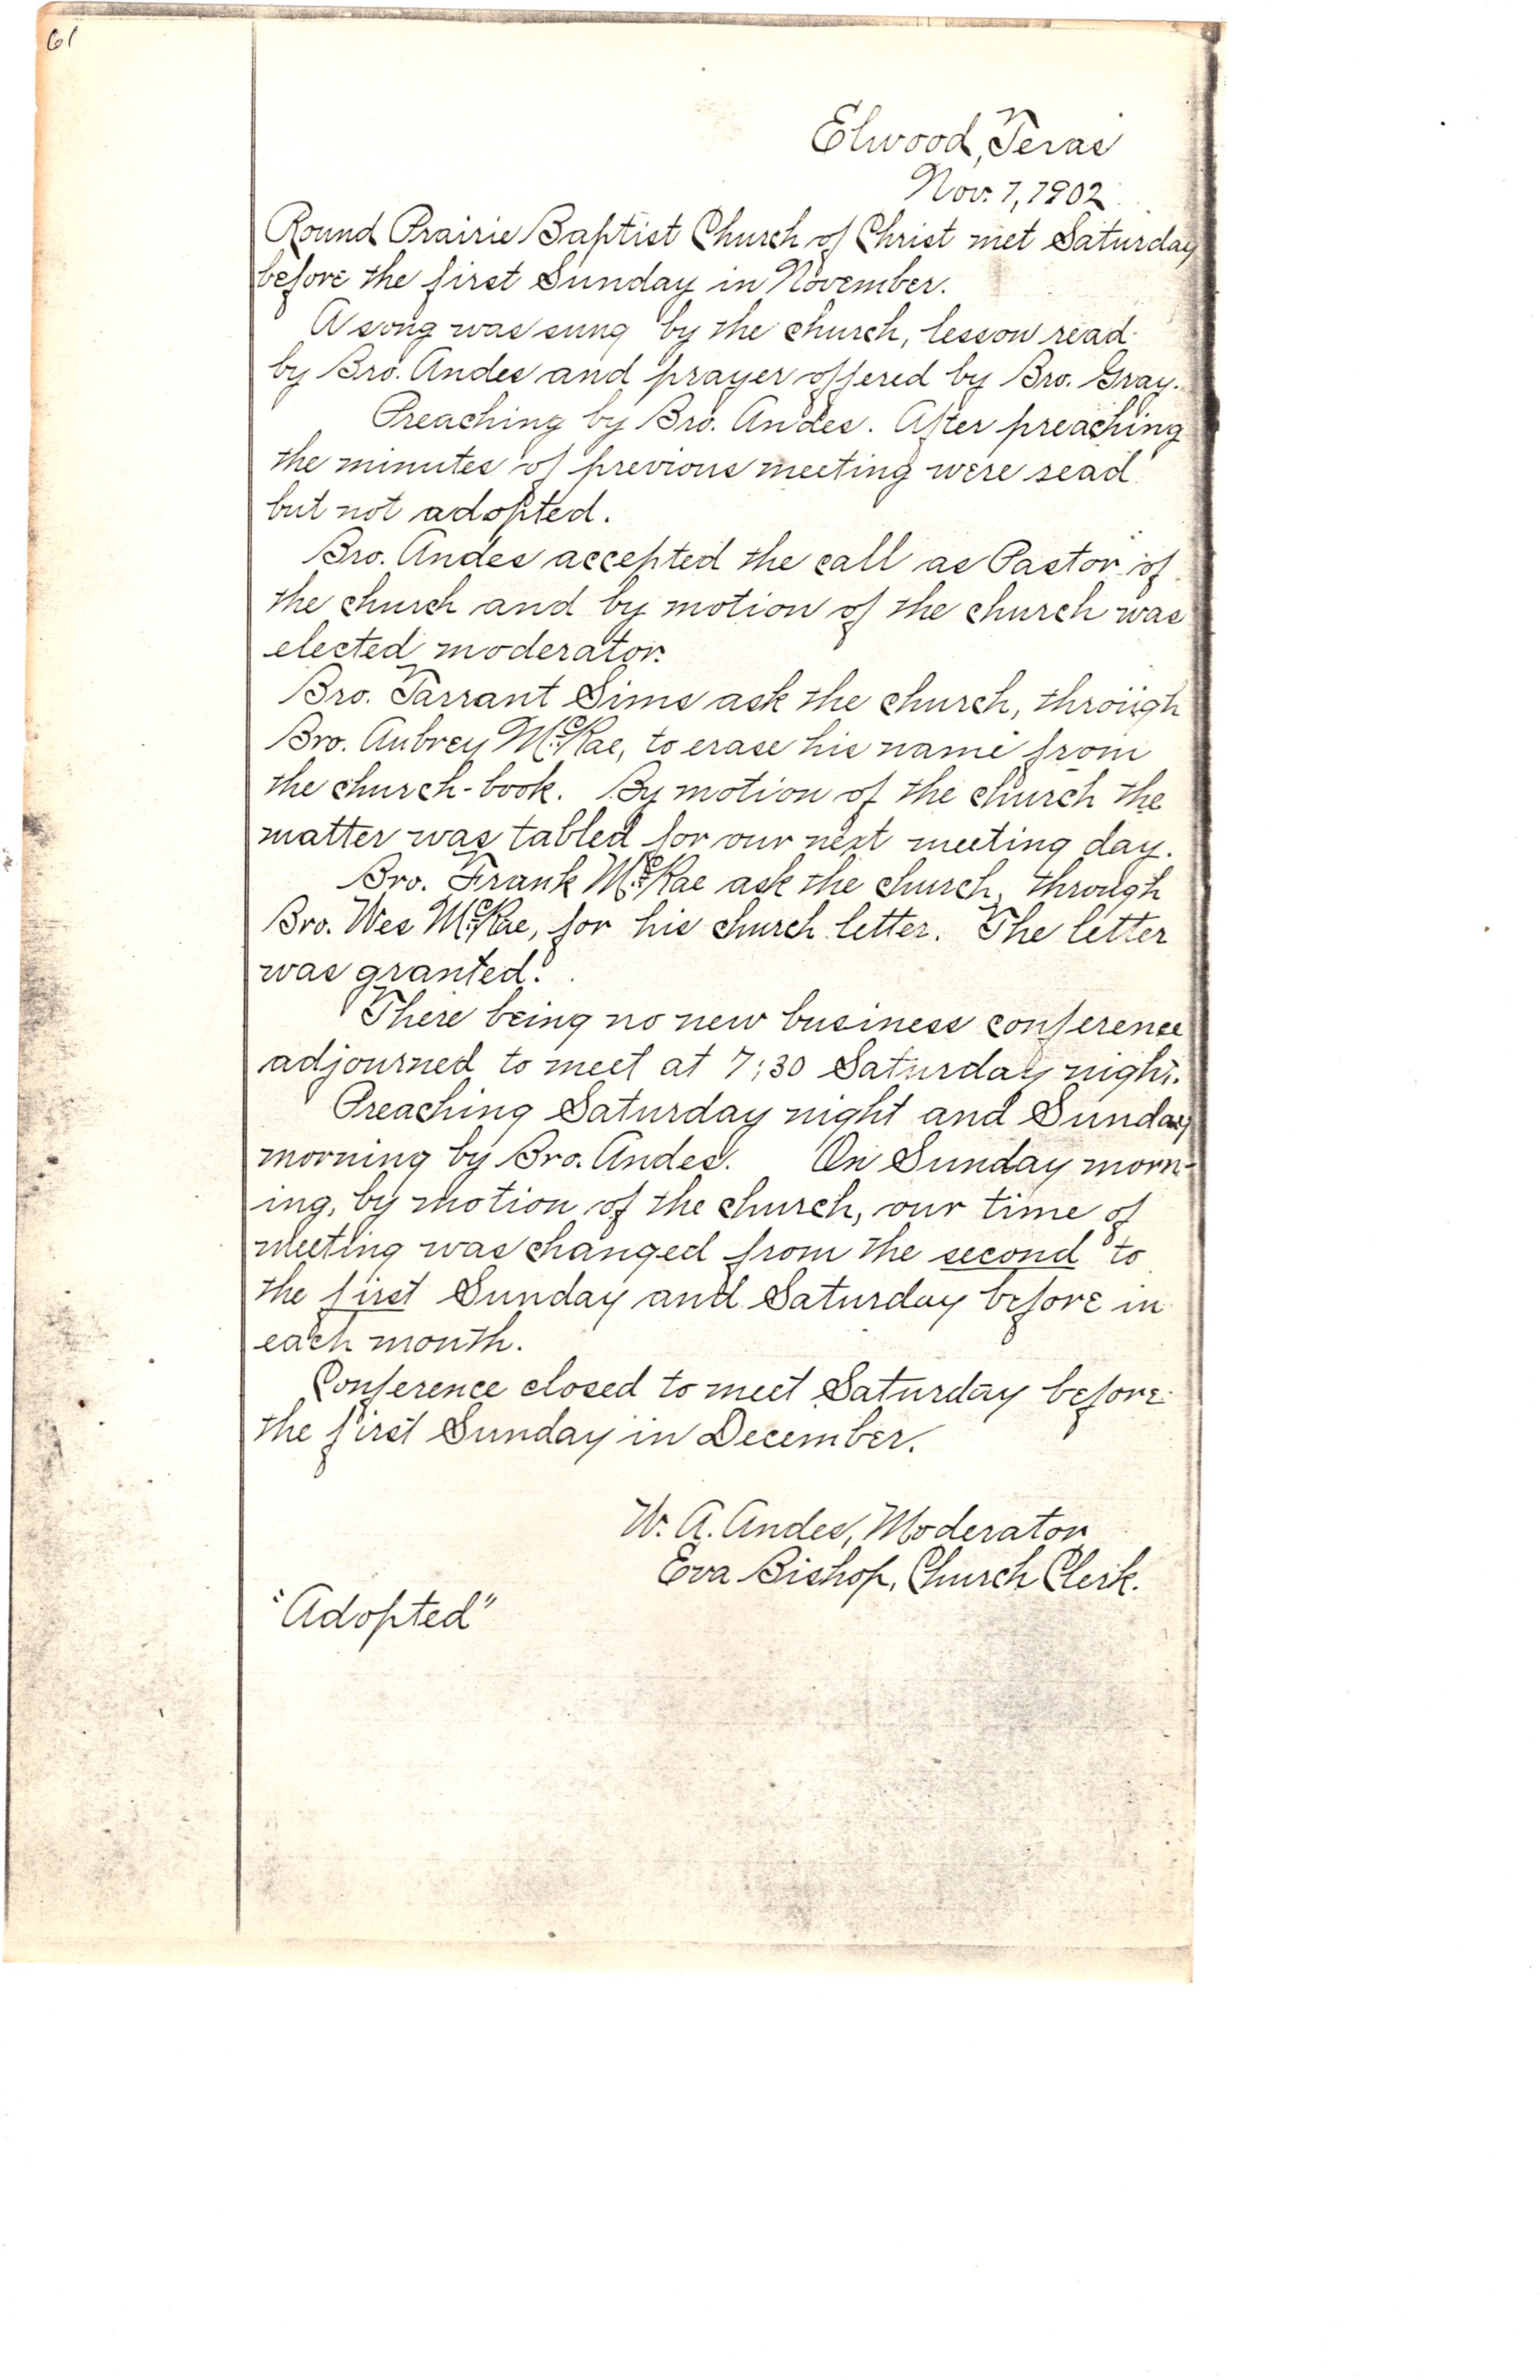 61
Elwood, Texas
Nov. 1, 1902.
Round Prairie Baptist Church of Christ met Saturday
before the first Sunday in November.
A song was sung by the church, lesson read
by Bro. Andes and prayer offered by Bro. Gray.
Preaching by Bro. Andes. After preaching
the minutes of previous meeting were read
but not adopted.
Bro. Andes accepted the call as Pastor of
the church and by motion of the church was
elected moderator.
Bro. Tarrant Sims ask the church, through
Bro. Aubrey McRae, to erase his name from
the church-book. By motion of the church the
matter was tabled for our next meeting day.
Bro. Frank McRae ask the church, through
Bro. Wes McRae, for his church letter. The letter
was granted.
There being no new business conference
adjourned to meet at 7:30 Saturday night.
Preaching Saturday night and Sunday
morning by Bro. Andes. On Sunday morn-
ing, by motion of the church, our time of
meeting was changed from the second to
the first Sunday and Saturday before in
each month.
Conference closed to meet Saturday before
the first Sunday in December.
W. A. Andes, Moderator
Eva Bishop, Church Clerk.
"Adopted"